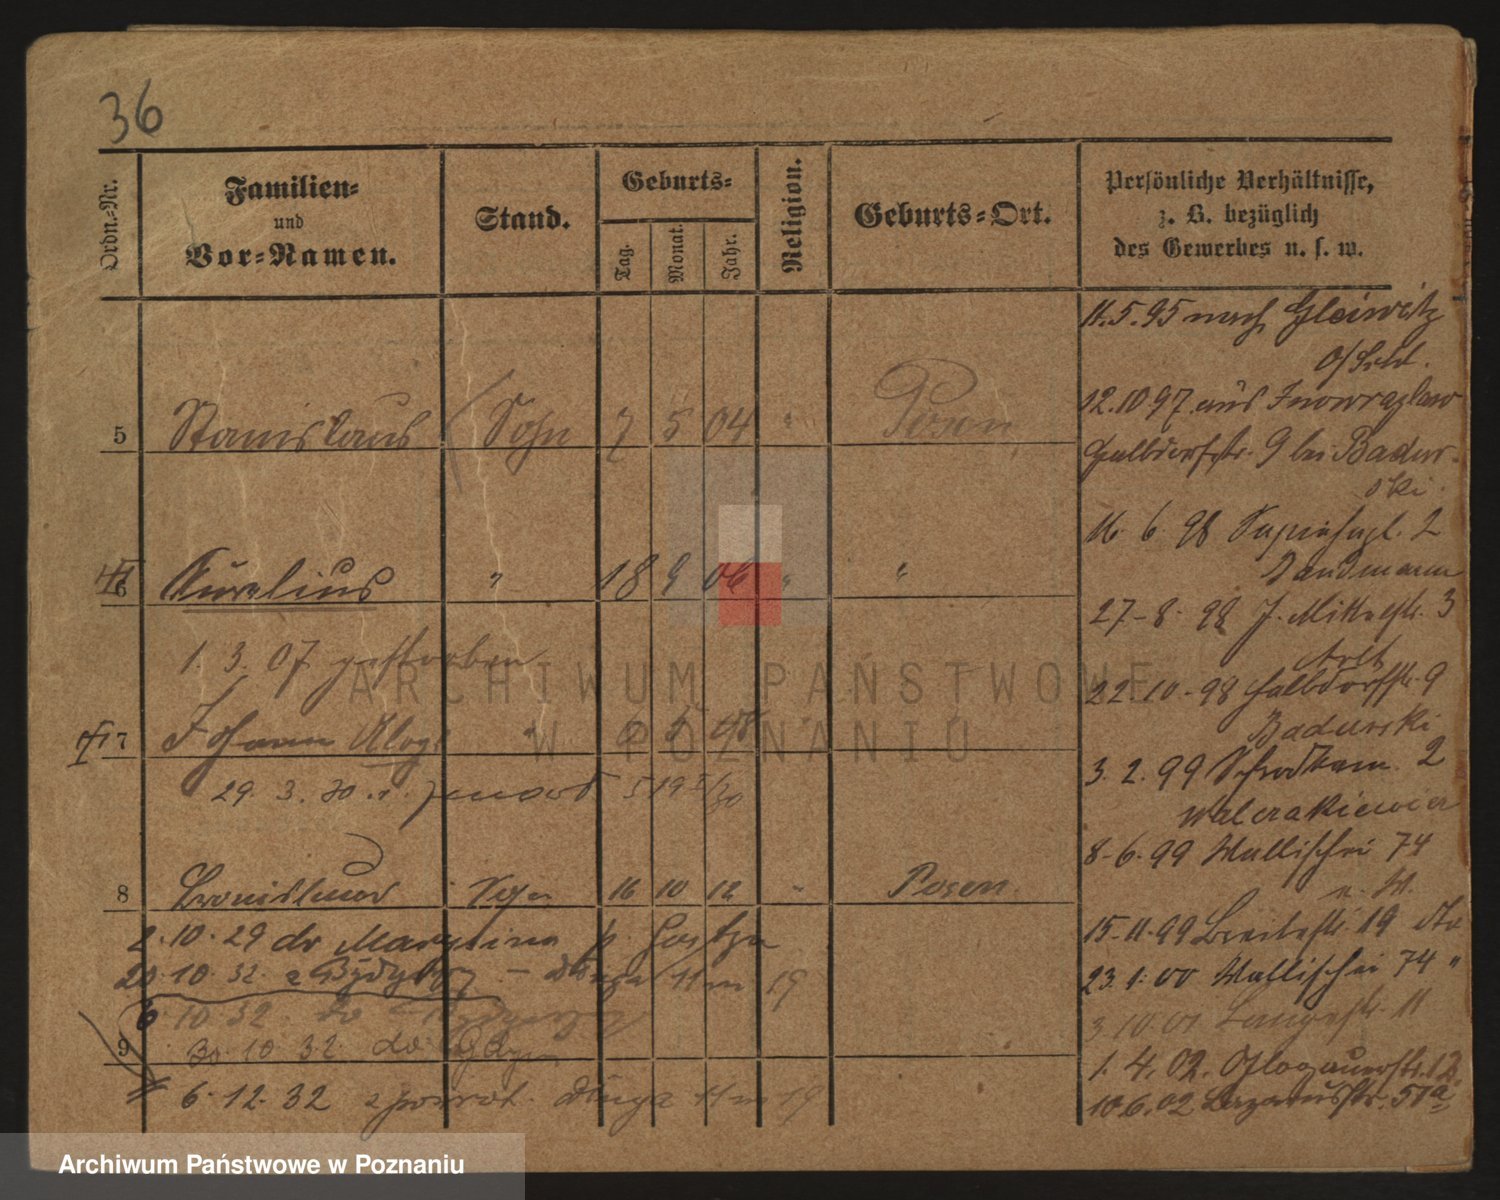 36
Ordn.-Nr.
Familien-
und
Vor-Namen.
Stand.
Geburts-
Tag.
Monat.
Jahr.
Religion.
Geburts-Ort.
Persönliche Verhältnisse,
z. B. bezüglich
des Gewerbes u. s. w.
5 Stanislaus Sohn 7 5 04 " Posen
6 Aurelius " 18 9 06 " "
1. 3. 07 gestorben
7 Johann " 5
29. 3. 30
8 Bronislaus Sohn 16 10 12 " Posen.
2. 10. 29 do
20. 10. 32. z Bydgoszcz - Długa 11 m 19
6. 10 32. do
9 30. 10 32 do
6. 12. 32 z powrot. Długa 11 m 19
11. 5. 95 nach Gleiwitz
O/Schl.
12. 10 97 aus Inowrazlaw
Halbdorfstr. 9 bei Badur-
ski.
16. 6. 98 Sapiehapl. 2
Sandmann
27-8-98 J. Mittestr. 3
22-10-98 Halbdorfstr. 9
Badurski
3. 2. 99 Schrodkam. 2
Walerakiewicz
8-6-99 Wallischei 74
15-11-99 Breitestr. 19 dto
23. 1. 00 Wallischei 74 "
3. 10. 01 Langestr. 11
1. 4. 02. Glogauerstr. 12.
10. 6. 02 Lazarusstr. 51a
ARCHIWUM PAŃSTWOWE
W POZNANIU
Archiwum Państwowe w Poznaniu